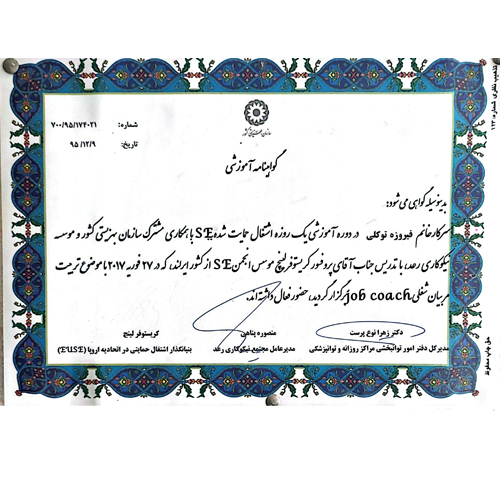 سازمان بهزیستی کشور
شماره: ۷۰۰/۹۵/۱۷۴۰۲۱
تاریخ: ۹۵/۱۲/۹
گواهینامه آموزشی
بدینوسیله گواهی می‌شود:
سرکار خانم فیروزه توکلی در دوره آموزشی یک روزه اشتغال حمایت شده SE با همکاری مشترک سازمان بهزیستی کشور و موسسه
نیکوکاری رعد، با تدریس جناب آقای پروفسور کریستوفر لینچ موسس انجمن SE از کشور ایرلند، که در ۲۷ فوریه ۲۰۱۷ با موضوع تربیت
مربیان شغلی job coach برگزار گردید، حضور فعال داشته‌اند.
دکتر زهرا نوع پرست
مدیرکل دفتر امور توانبخشی مراکز روزانه و توانپزشکی
منصوره پناهی
مدیرعامل مجتمع نیکوکاری رعد
کریستوفر لینچ
بنیانگذار اشتغال حمایتی در اتحادیه اروپا (EUSE)
تذهیب نظری شماره: ۱۱۳
حق چاپ محفوظ